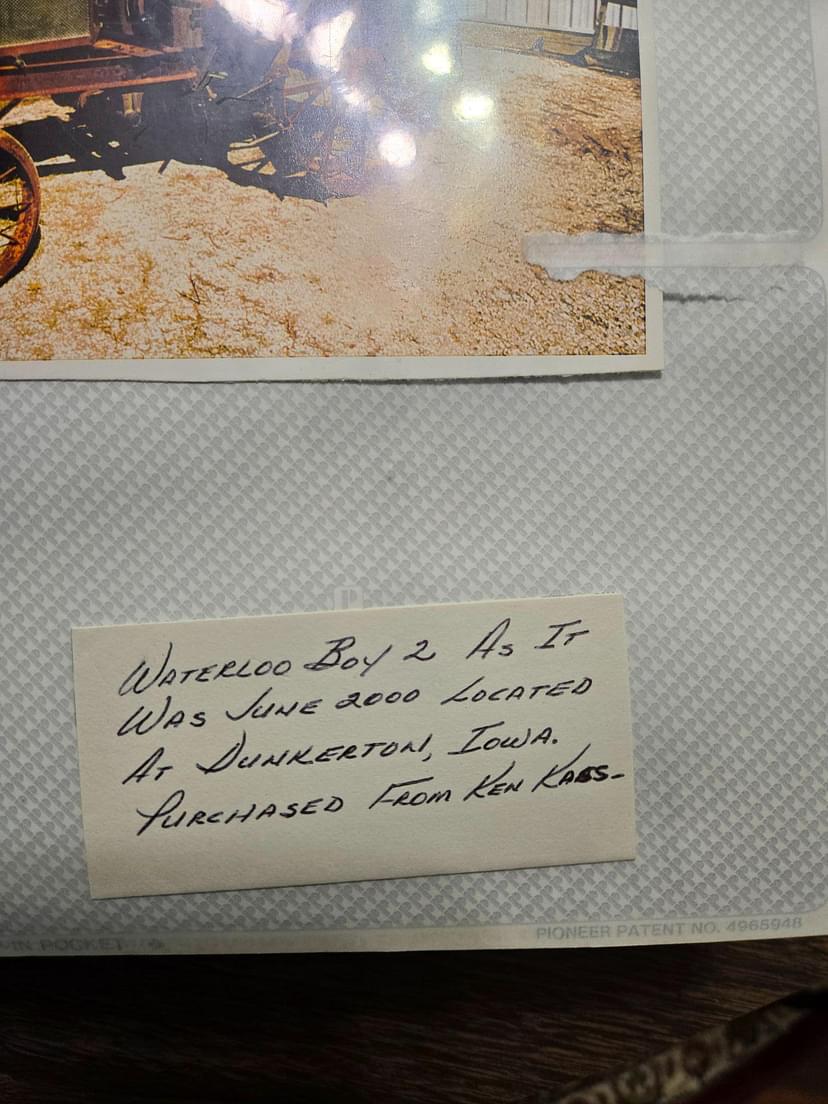 WATERLOO BOY 2 AS IT
WAS JUNE 2000 LOCATED
AT DUNKERTON, IOWA.
PURCHASED FROM KEN KASS-
PIONEER PATENT NO. 4965948
POCKET